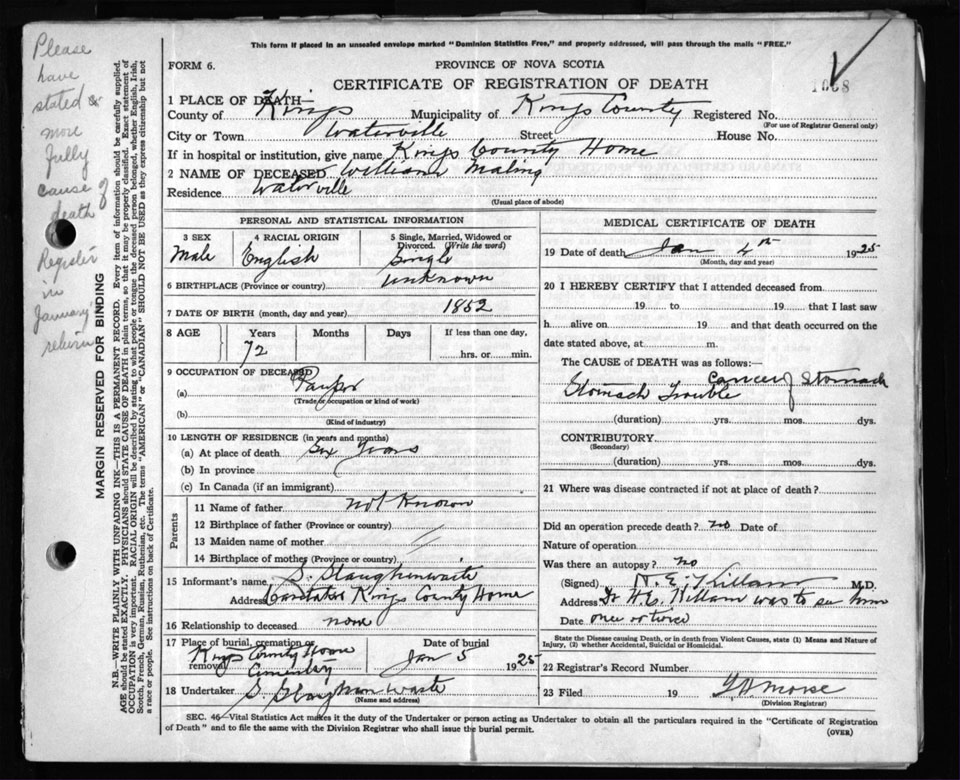 Please
have
stated
more
fully
cause of
death
Register
in
January
This form if placed in an unsealed envelope marked "Dominion Statistics Free," and properly addressed, will pass through the mails "FREE."
FORM 6.
PROVINCE OF NOVA SCOTIA
CERTIFICATE OF REGISTRATION OF DEATH
1 PLACE OF DEATH—
County of Kings Municipality of Kings County Registered No.
(For use of Registrar General only)
City or Town Waterville Street House No.
If in hospital or institution, give name Kings County Home
2 NAME OF DECEASED William Maling
Residence Waterville
(Usual place of abode)
PERSONAL AND STATISTICAL INFORMATION
3 SEX Male
4 RACIAL ORIGIN English
5 Single, Married, Widowed or Divorced. (Write the word) Single
6 BIRTHPLACE (Province or country) unknown
7 DATE OF BIRTH (month, day and year) 1852
8 AGE Years Months Days If less than one day,
72 hrs. or min.
9 OCCUPATION OF DECEASED
(a) Pauper
(Trade or occupation or kind of work)
(b)
(Kind of industry)
10 LENGTH OF RESIDENCE (in years and months)
(a) At place of death Six Years
(b) In province
(c) In Canada (if an immigrant)
Parents
11 Name of father not Known
12 Birthplace of father (Province or country)
13 Maiden name of mother
14 Birthplace of mother (Province or country)
15 Informant's name S. Slaughenwaite
Address Caretaker Kings County Home
16 Relationship to deceased none
17 Place of burial, cremation or removal Kings County Home Cemetary
Date of burial Jan 5 1925
18 Undertaker S. Slaughenwaite
(Name and address)
MEDICAL CERTIFICATE OF DEATH
19 Date of death Jan 4th 1925
(Month, day and year)
20 I HEREBY CERTIFY that I attended deceased from
19 to 19 that I last saw
h alive on 19 and that death occurred on the
date stated above, at m.
The CAUSE of DEATH was as follows:—
Cancer of Stomach
Stomach Trouble
(duration) yrs. mos. dys.
CONTRIBUTORY
(Secondary)
(duration) yrs. mos. dys.
21 Where was disease contracted if not at place of death?
Did an operation precede death? no Date of
Nature of operation
Was there an autopsy? no
(Signed) H. E. Killam M.D.
Address Dr H.E. Killam was to see him
Date once or twice
State the Disease causing Death, or in death from Violent Causes, state (1) Means and Nature of
Injury, (2) whether Accidental, Suicidal or Homicidal.
22 Registrar's Record Number
23 Filed 19 Morse
(Division Registrar)
SEC. 46—Vital Statistics Act makes it the duty of the Undertaker or person acting as Undertaker to obtain all the particulars required in the "Certificate of Registration
of Death" and to file the same with the Division Registrar who shall issue the burial permit.
(OVER)
MARGIN RESERVED FOR BINDING
N.B.—WRITE PLAINLY WITH UNFADING INK—THIS IS A PERMANENT RECORD. Every item of information should be carefully supplied.
AGE should be stated EXACTLY. PHYSICIANS should STATE CAUSE OF DEATH in plain terms, so that it may be properly classified. Exact statement of
OCCUPATION is very important. RACIAL ORIGIN will be described by stating to what people or tongue the deceased person belonged, whether English, Irish,
Scotch, French, German, Russian, Ruthenian, etc. The terms "AMERICAN" or "CANADIAN" SHOULD NOT BE USED as they express citizenship but not
a race or people. See instructions on back of Certificate.